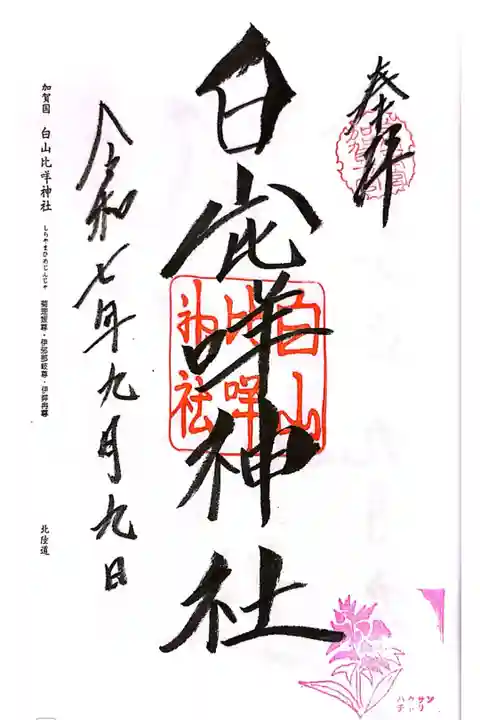 奉拝
白山比咩神社
白山
比咩
神社
令和七年九月九日
加賀国 白山比咩神社 しらやまひめじんじゃ 菊理媛尊・伊弉那岐尊・伊弉冉尊 北陸道
ハクサン
チドリ